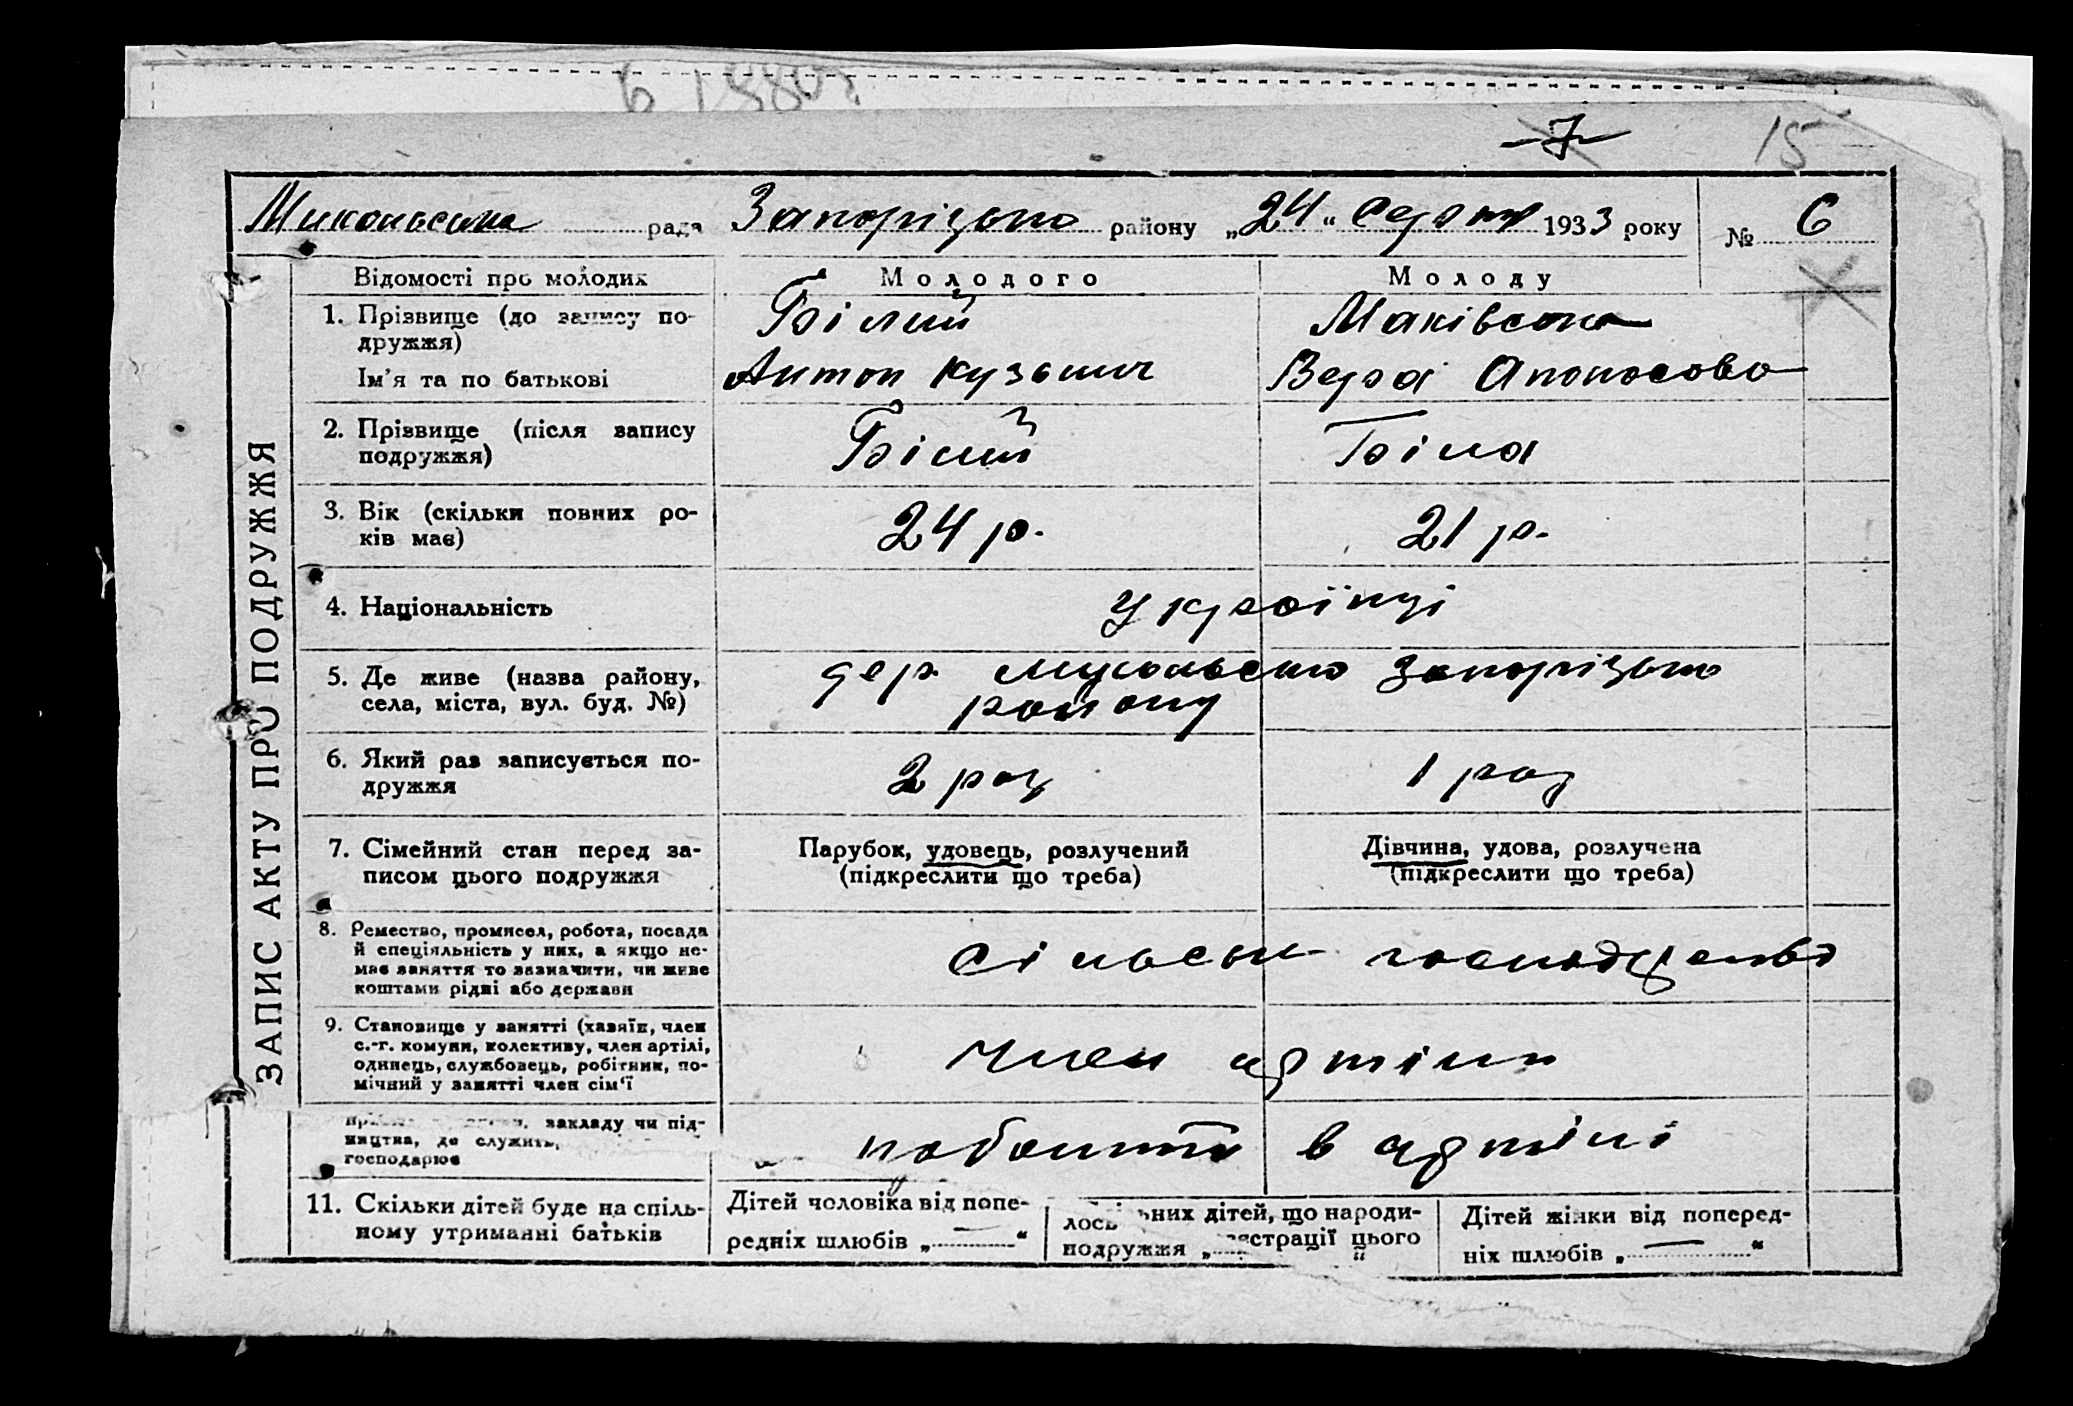 7
15
Микольська рада Запорізького району „24“ Серпня 1933 року № 6
ЗАПИС АКТУ ПРО ПОДРУЖЖЯ
Відомості про молодих Молодого Молоду
1. Прізвище (до запису по-
дружжя)
Білий Маківська
Ім'я та по батькові Антон Кузьмич Вера
2. Прізвище (після запису
подружжя)
Білий Біла
3. Вік (скільки повних ро-
ків має)
24 р. 21 р.
4. Національність Українці
5. Де живе (назва району,
села, міста, вул. буд. №)
дер. Запорізького
району
6. Який раз записується по-
дружжя
2 раз 1 раз
7. Сімейний стан перед за-
писом цього подружжя
Парубок, удовець, розлучений
(підкреслити що треба)
Дівчина, удова, розлучена
(підкреслити що треба)
8. Ремество, промисел, робота, посада
й спеціяльність у них, а якщо не-
має заняття то зазначити, чи живе
коштами рідні або держави
сільське господарство
9. Становище у занятті (хазяїн, член
с.-г. комуни, колективу, член артілі,
одинець, службовець, робітник, по-
мічний у занятті член сім'ї
член артіли
закладу чи під-
де служить,
господарює
в артілі
11. Скільки дітей буде на спіль-
ному утриманні батьків
Дітей чоловіка від попе-
редніх шлюбів „—“
дітей, що народи-
лось цього
подружжя „ “
Дітей жінки від поперед-
ніх шлюбів „—“